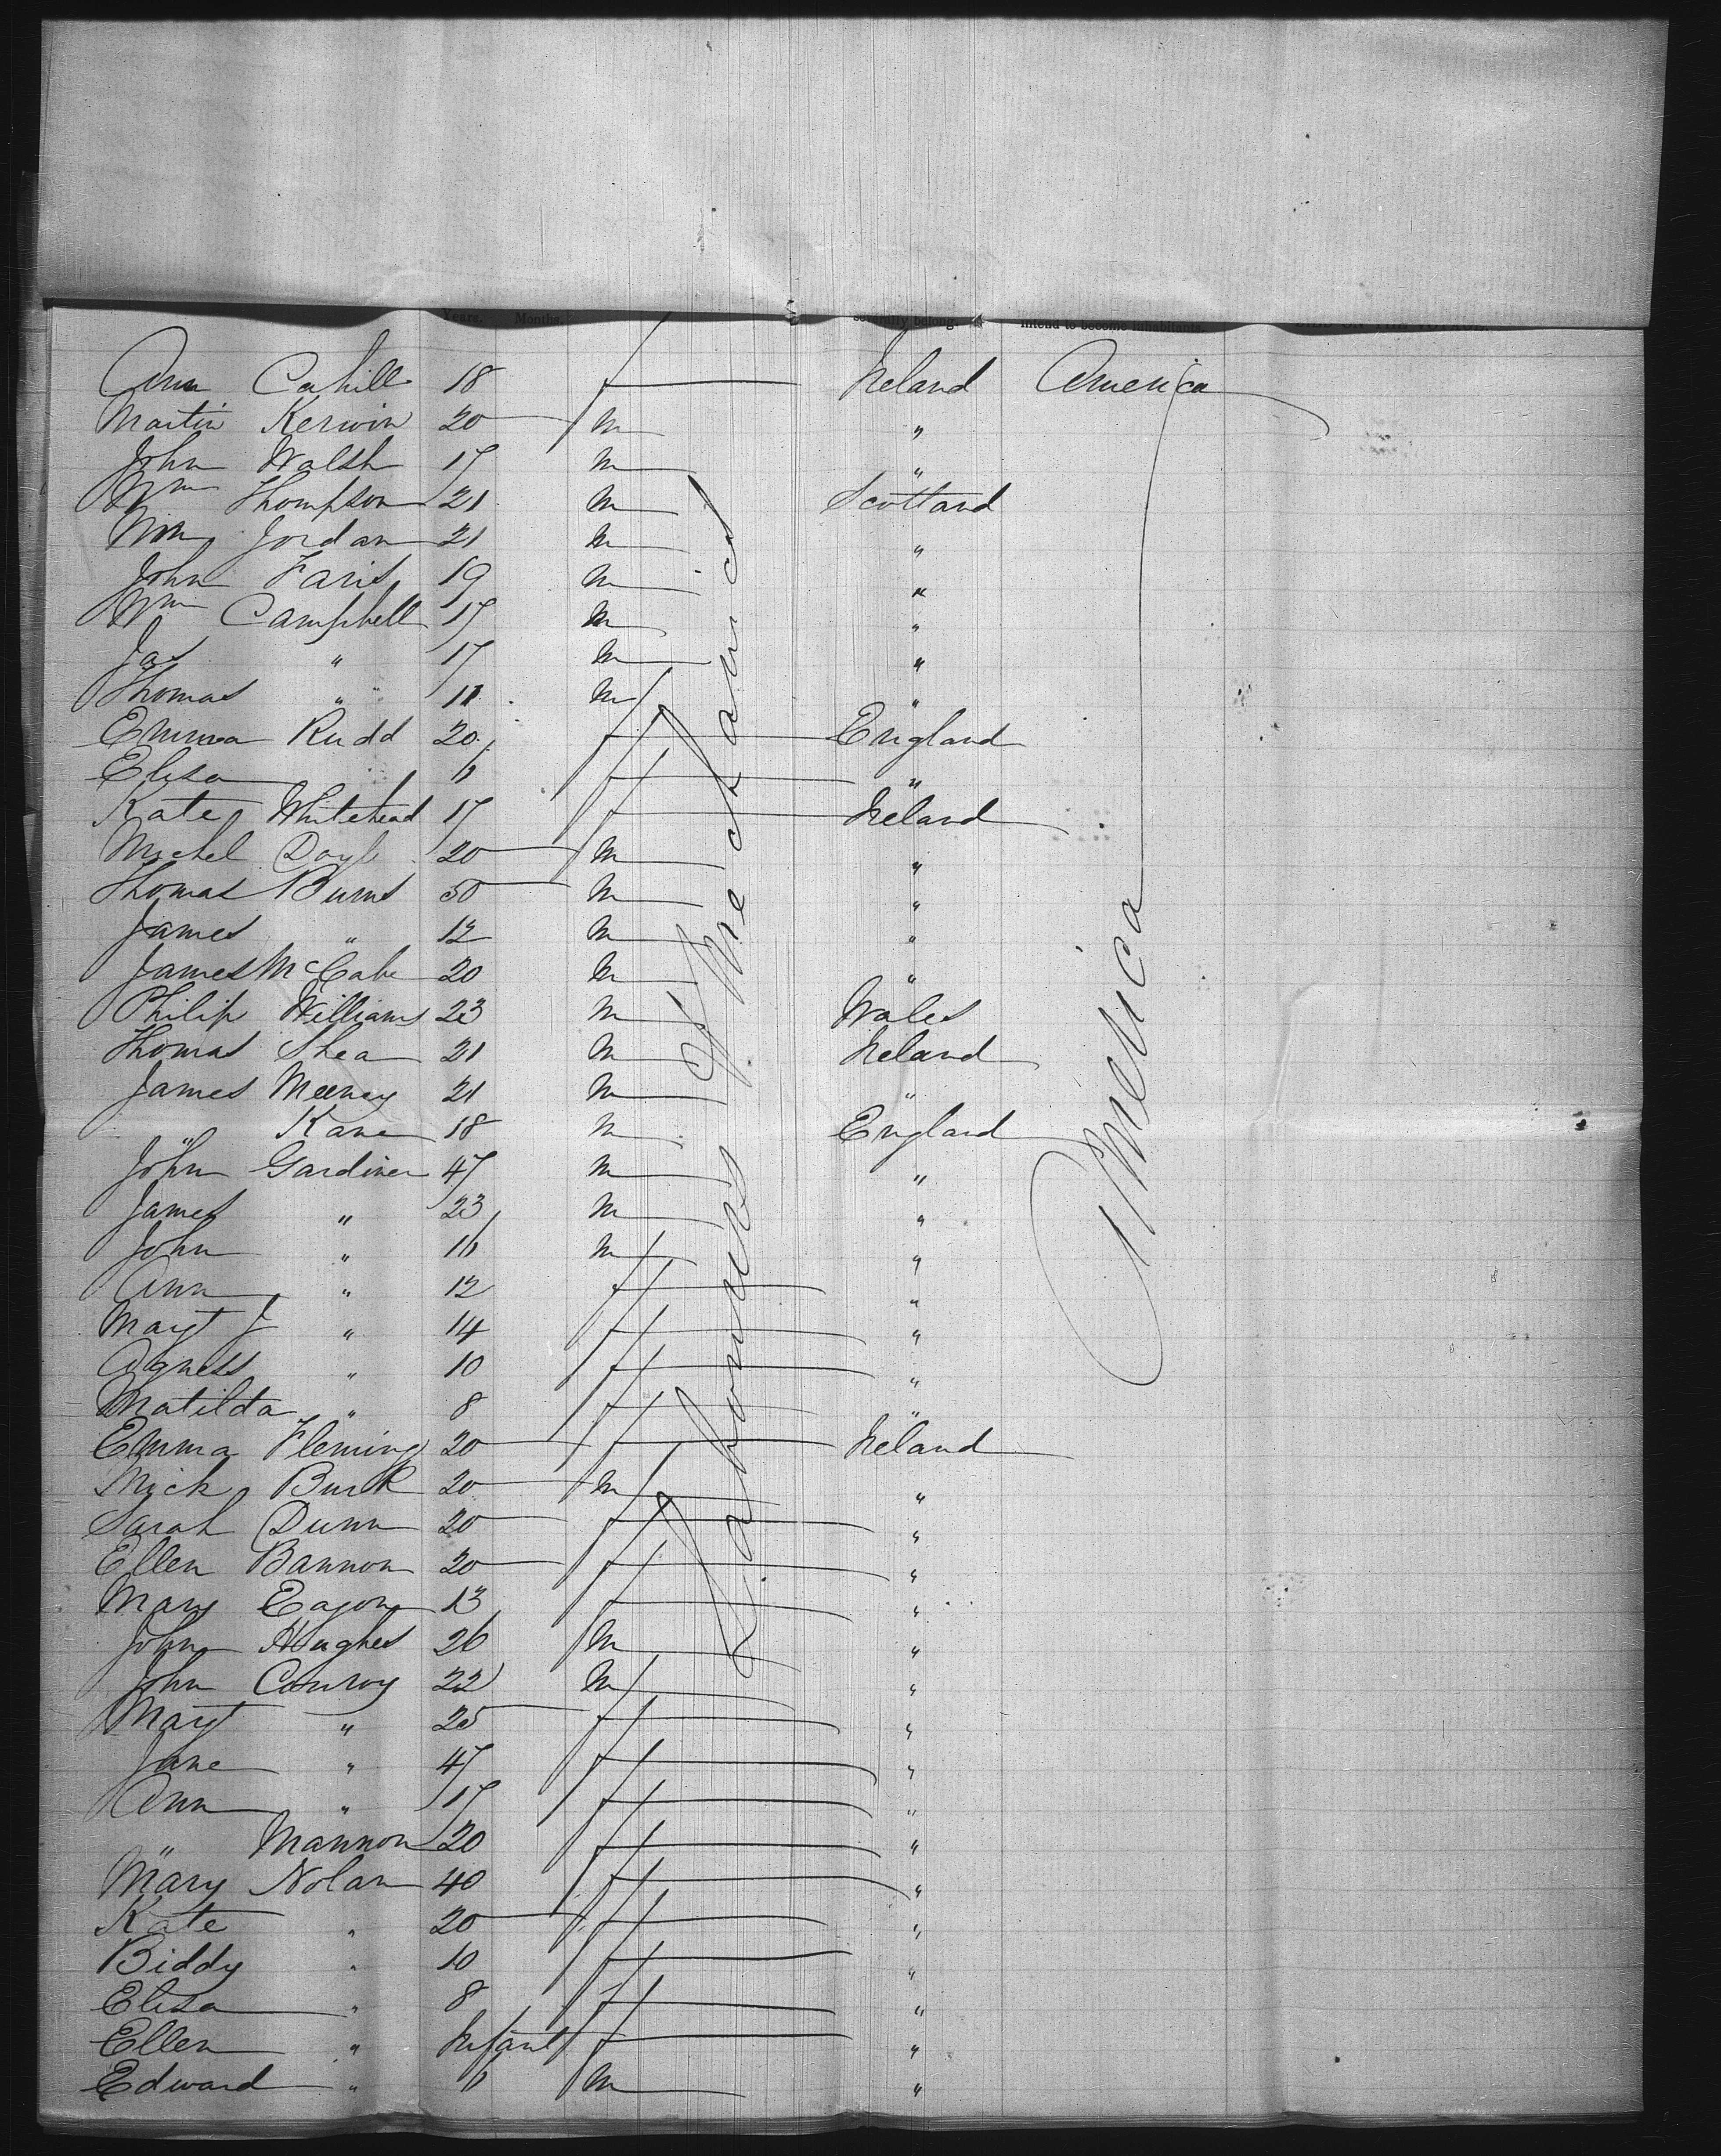 Years. Months. severally belong. intend to become inhabitants.
Ann Cahill 18 f Ireland America
Martin Kerwin 20 m "
John Walsh 17 m "
Wm Thompson 21 m Scotland
Wm Jordan 21 m "
John Faris 19 m "
Wm Campbell 17 m "
Jas " 17 m "
Thomas " 11 m "
Emma Rudd 20 f England
Elisa 6 f "
Kate Whitehead 17 f Ireland
Michel Doyle 20 m "
Thomas Burns 50 m "
James " 12 m "
James McCabe 20 m "
Philip Williams 23 m Wales
Thomas Shea 21 m Ireland
James Meeney 21 m "
" Kane 18 m England
John Gardiner 47 m "
James " 23 m "
John " 16 m "
Ann " 12 f "
Margt J " 14 f "
Agness " 10 f "
Matilda " 8 f "
Emma Fleming 20 f Ireland
Mick Burk 20 m "
Sarah Dunn 20 f "
Ellen Bannon 20 f "
Mary Eagon 13 f "
John Hughes 26 m "
John Conroy 22 m "
Margt " 25 f "
Jane " 47 f "
Ann " 17 f "
" Mannon 20 f "
Mary Nolan 40 f "
Kate " 20 f "
Biddy " 10 f "
Elisa " 8 f "
Ellen " Infant f "
Edward " 6 m "
Labourers & Mechanics
America